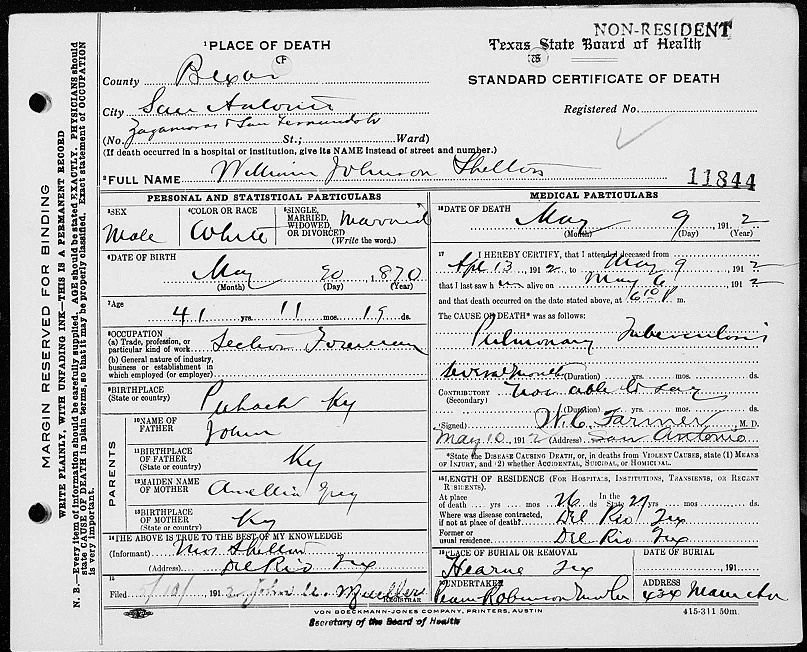 NON-RESIDENT
¹PLACE OF DEATH
Texas State Board of Health
County Bexar
STANDARD CERTIFICATE OF DEATH
City San Antonio
Registered No.
(No. Zarzamoras & San Fernando St.; Ward)
(If death occurred in a hospital or institution, give its NAME instead of street and number.)
²FULL NAME William Johnson Shelton
11844
PERSONAL AND STATISTICAL PARTICULARS
³SEX Male
⁴COLOR OR RACE White
⁵SINGLE, MARRIED, WIDOWED, OR DIVORCED (Write the word.) Married
⁶DATE OF BIRTH
May 20 1870
(Month) (Day) (Year)
⁷Age
41 yrs. 11 mos. 19 ds.
⁸OCCUPATION
(a) Trade, profession, or particular kind of work Section Foreman
(b) General nature of industry, business or establishment in which employed (or employer)
⁹BIRTHPLACE
(State or country) Ky
PARENTS
¹⁰NAME OF FATHER John
¹¹BIRTHPLACE OF FATHER
(State or country) Ky
¹²MAIDEN NAME OF MOTHER
¹³BIRTHPLACE OF MOTHER
(State or country) Ky
¹⁴THE ABOVE IS TRUE TO THE BEST OF MY KNOWLEDGE
(Informant) Mrs Shelton
(Address) Del Rio Tex
¹⁵
Filed 5/10/ 1912 REGISTRAR
MEDICAL PARTICULARS
¹⁶DATE OF DEATH
May 9 1912
(Month) (Day) (Year)
¹⁷ I HEREBY CERTIFY, that I attended deceased from
Apl 13 1912 to May 9 1912
that I last saw h im alive on May 6 1912
and that death occurred on the date stated above, at 6 10 P m.
The CAUSE OF DEATH* was as follows:
Pulmonary Tuberculosis
several months (Duration) yrs. mos. ds.
CONTRIBUTORY Not able to say
(Secondary)
(Duration) yrs. mos. ds.
(Signed) W. C. Farmer M. D.
May 10 1912 (Address) San Antonio
*State the DISEASE CAUSING DEATH, or, in deaths from VIOLENT CAUSES, state (1) MEANS OF INJURY, and (2) whether ACCIDENTAL, SUICIDAL, or HOMICIDAL.
¹⁸LENGTH OF RESIDENCE (FOR HOSPITALS, INSTITUTIONS, TRANSIENTS, OR RECENT RESIDENTS).
At place of death yrs. mos. 26 ds In the State 27 yrs. mos. ds.
Where was disease contracted, if not at place of death? Del Rio Tex
Former or usual residence Del Rio Tex
¹⁹PLACE OF BURIAL OR REMOVAL
Hearne Tex
DATE OF BURIAL
191
²⁰UNDERTAKER
ADDRESS
MARGIN RESERVED FOR BINDING
WRITE PLAINLY, WITH UNFADING INK—THIS IS A PERMANENT RECORD
N. B.—Every item of information should be carefully supplied. AGE should be stated EXACTLY. PHYSICIANS should
state CAUSE OF DEATH in plain terms, so that it may be properly classified. Exact statement of OCCUPATION
is very important.
VON BOECKMANN-JONES COMPANY, PRINTERS, AUSTIN
415-311. 50m.
Secretary of the Board of Health